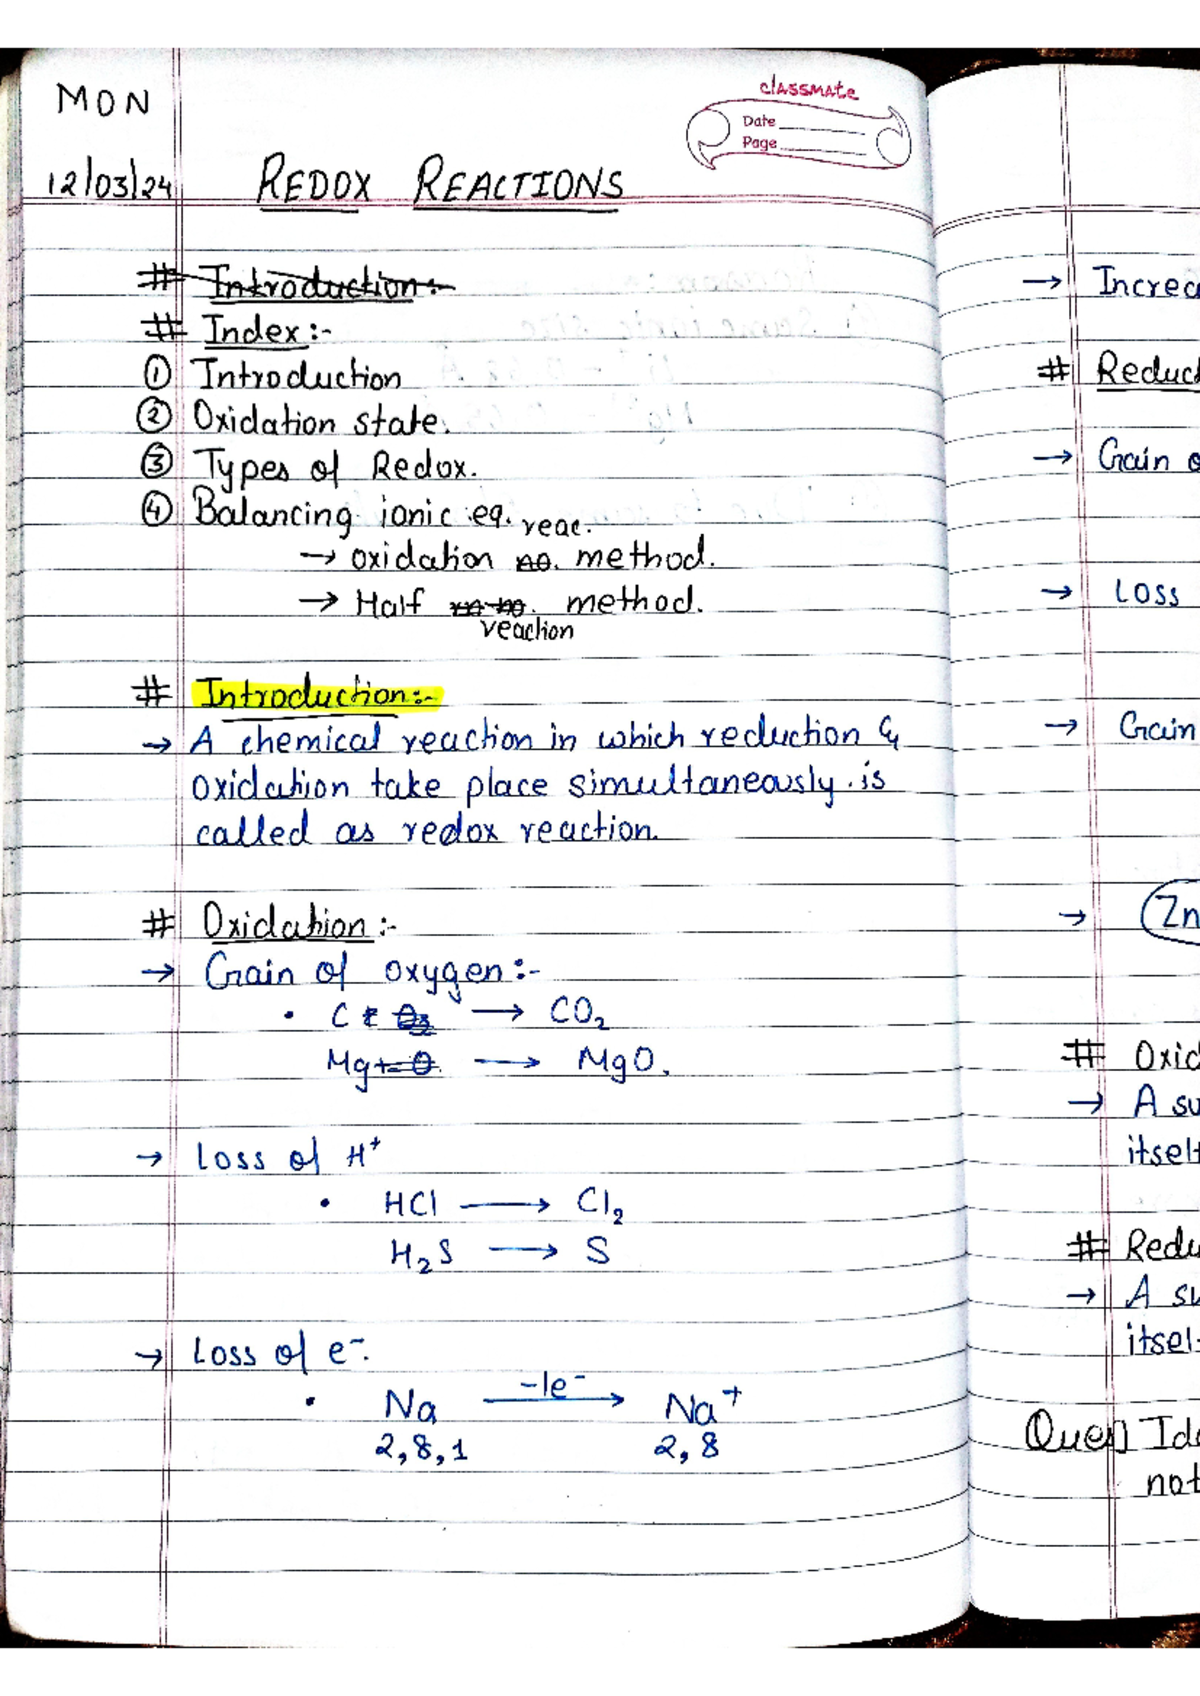 MON
classmate
Date
Page
12/03/24 REDOX REACTIONS
# Introduction:-
# Index:-
① Introduction
② Oxidation state.
③ Types of Redox.
④ Balancing ionic eq. reac.
→ oxidation no. method.
→ Half method.
reaction
# Introduction:-
→ A chemical reaction in which reduction &
oxidation take place simultaneously is
called as redox reaction.
# Oxidation:-
→ Gain of oxygen:-
• C + O₂ → CO₂
Mg + O → MgO.
→ Loss of H⁺
• HCl → Cl₂
H₂S → S
→ Loss of e⁻.
• Na -1e⁻→ Na⁺
2,8,1 2,8
→ Increa
# Reduct
→ Gain o
→ Loss
→ Gain
→ Zn
# Oxid
→ A su
itself
# Redu
→ A su
itsel
Ques] Ide
not